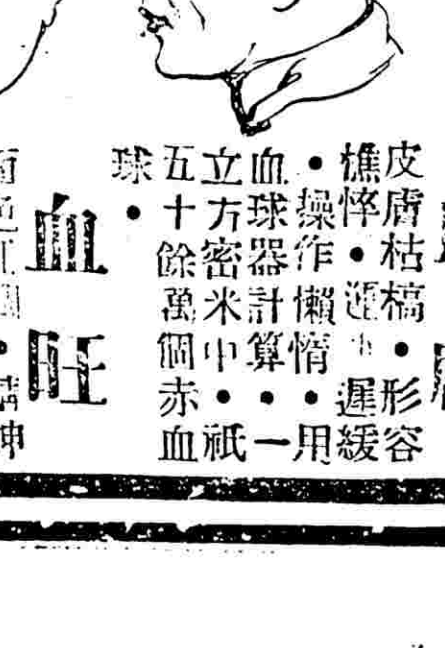 皮膚枯槁•形容
憔悴•運 遲緩
•操作懶惰•用
血球器計算•一
立方密米中•祇
五十餘萬個赤血
球•
血旺